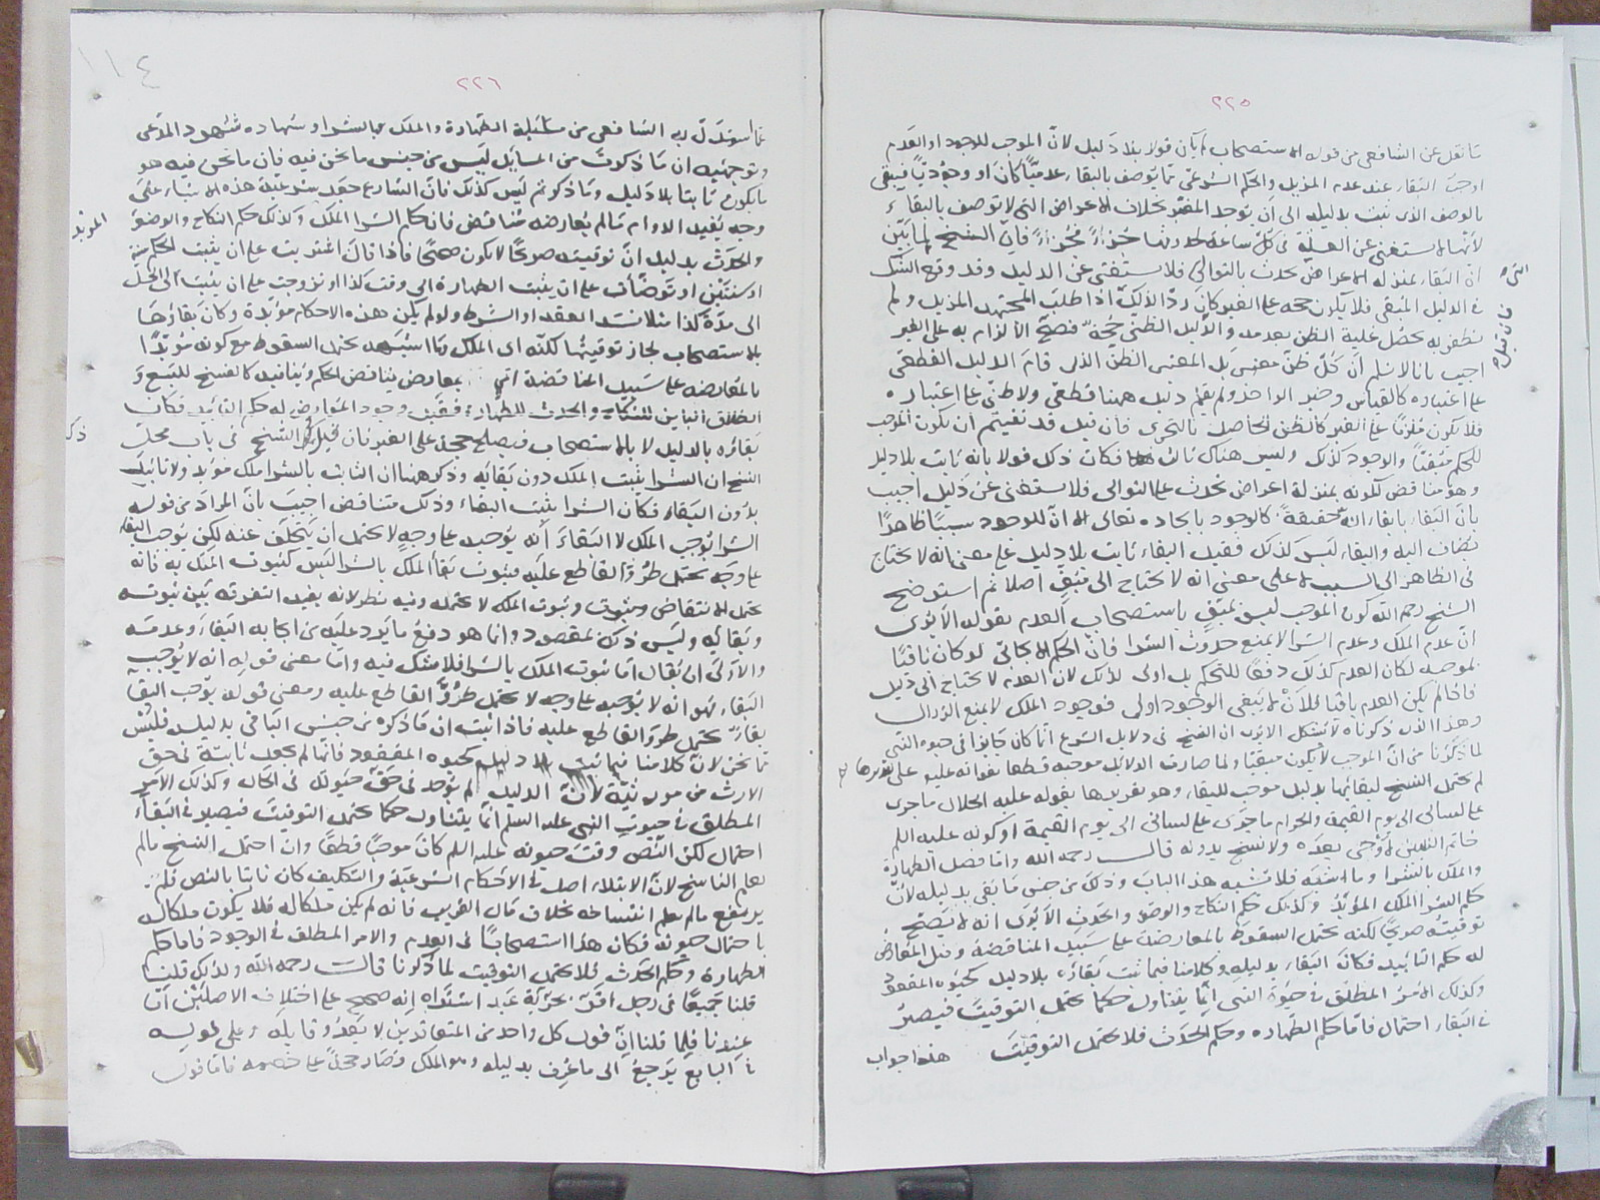 ٢٢٥
ما نقل عن الشافعي من قوله الاستصحاب بأن قولا بلا دليل لان الموجب للوجود او العدم
اوجب البقاء عند عدم المزيل والحكم الشرعي مما يوصف بالبقاء عدميا كان او وجوديا فيبقى
بالوصف الذى ثبت بدليله الى ان يوجد المغير بخلاف الاعراض التى لا توصف بالبقاء
لانها لا تستغنى عن العلة فى كل ساعة لحدوثها جزءا فجزءا فان الشيخ لما بين
ان البقاء بمنزلة الاعراض تحدث بالتوالى فلا تستغنى عن الدليل وقد وقع الشك
فى الدليل المبقى فلا يكون حجة على الغير كان ردا لذلك اذا طلب المجتهد المزيل ولم
يظفر به يحصل غلبة الظن بعدمه والدليل الظنى حجة فصح الالزام به على الغير
اجيب بانا لا نسلم ان كل ظن معتبر بل المعتبر الظن الذى قام الدليل القطعى
على اعتباره كالقياس وخبر الواحد ولم يقم دليل ههنا قطعى ولا ظنى على اعتباره
فلا يكون ملزما على الغير كالظن الحاصل بالتحرى فان قيل قد نفيتم ان يكون الموجب
للحكم مبقيا والوجود كذلك وليس هناك ثالث فكان ذلك قولا بانه ثابت بلا دليل
وهو مناقض لكونه بمنزلة اعراض تحدث على التوالى فلا تستغنى عن دليل اجيب
بان البقاء بابقاء الله حقيقة كالوجود بايجاده تعالى الا ان للوجود سببا ظاهرا
يضاف اليه والبقاء ليس كذلك فقيل البقاء ثابت بلا دليل على معنى انه لا يحتاج
فى الظاهر الى السبب لا على معنى انه لا يحتاج الى مبق اصلا ثم استوضح
الشيخ رحمه الله كون الموجب ليس بمبق باستصحاب العدم بقوله الا يرى
ان عدم الملك وعدم الشراء لا يمنع حدوث الشراء فان الحكم الايجابى لو كان باقيا
بموجبه لكان العدم كذلك دفعا للتحكم بل اولى لذلك لان العدم لا يحتاج الى دليل
فاذا لم يكن العدم باقيا فلان لا يبقى الوجود اولى فوجود الملك لا يمنع الزوال
وهذا الذى ذكرناه لا يشكل الا يرى ان النسخ فى دلايل الشرع انما كان جايزا فى حيوة النبى
لما ذكرنا من ان الموجب لا يكون مبقيا ولما صارت الدلائل موجبة قطعا بوفاته عليه على تقريرها
لم يحتمل النسخ لبقائها بدليل موجب للبقاء وهو تقريرها بقوله عليه الحلال ما جرى
على لسانى الى يوم القيمة والحرام ما جرى على لسانى الى يوم القيمة او كونه عليه السلم
خاتم النبيين لا وحى بعده ولا نسخ بدونه قال رحمه الله واما فصل الطهارة
والملك بالشراء وما اشبه فلا تشبه هذا الباب وذلك من جنس ما بقى بدليله لان
حكم الشراء الملك المؤبد وكذلك حكم النكاح والوضوء والحدث الا يرى انه لا يصح
توقيته صريحا لكنه يحتمل السقوط بالمعارضة على سبيل المناقضة وقبل المعارض
له حكم التابيد فكان البقاء بدليله وكلامنا فيما ثبت بقاؤه بلا دليل كحيوة المفقود
وكذلك الامر المطلق فى حيوة النبى انما يتناول حكما يحتمل التوقيت فيصير
فى البقاء احتمال فاما حكم الطهارة وحكم الحدث فلا يحتمل التوقيت
هذا جواب
١١٤
٢٢٦
عما استدل به الشافعى من مسئلة الطهارة والملك بالشراء وشهادة شهود المدعى
وتوجيهه ان ما ذكرت من المسايل ليس من جنس ما نحن فيه فان ما نحن فيه هو
ما يكون ثابتا بلا دليل وما ذكرتم ليس كذلك فان الشارع جعل شرعية هذه الاشياء على
وجه يفيد الدوام ما لم يعارضه مناقض فان حكم الشراء الملك وكذلك حكم النكاح والوضوء
المؤبد
والحدث بدليل ان توقيته صريحا لا يكون صحيحا فاذا قال اشتريت على ان يثبت الحكم سنة
او سنتين او توضأت على ان يثبت الطهارة الى وقت كذا او تزوجت على ان يثبت الحل
الى مدة كذا مثلا فسد العقد او الشرط ولو لم يكن هذه الاحكام مؤبدة وكان بقاؤها
بالاستصحاب لجاز توقيتها لكنه اى الملك وما اشبهه يحتمل السقوط مع كونه مؤبدا
بالمعارضة على سبيل المناقضة اى بمعارض يناقض الحكم وينافيه كالفسخ للبيع و
الطلاق البائن للنكاح والحدث للطهارة فقبل وجود المعارض له حكم التابيد فكان
بقاؤه بالدليل لا بالاستصحاب فيصلح حجة على الغير فان قيل ذكر الشيخ فى باب محل
النسخ ان الشراء يثبت الملك دون بقائه وذكر ههنا ان الثابت بالشراء ملك مؤبد ولا تابيد
بدون البقاء فكان الشراء يثبت البقاء وذلك متناقض اجيب بان المراد من قوله
الشراء يوجب الملك لا البقاء انه يوجبه على وجه لا يحتمل ان يتخلف عنه لكن يوجب البقاء
على وجه يحتمل طرو القاطع عليه فثبوت بقاء الملك بالشراء ليس كثبوت الملك به فانه
يحتمل الانتقاض وثبوت الملك لا يحتمله وفيه نظر لانه يفيد التفرقة بين ثبوته
وبقائه وليس ذلك بمقصود وانما هو دفع ما يرد عليه من ايجابه البقاء وعدمه
والاولى ان يقال اما ثبوت الملك بالشراء فلا شك فيه واما معنى قوله انه لا يوجب
البقاء فهو انه لا يوجبه على وجه لا يحتمل طرو القاطع عليه ومعنى قوله يوجب البقاء
بقاء يحتمل طرو القاطع عليه فاذا ثبت ان ما ذكره من جنس الباقى بدليل فليس
مما نحن فيه لان كلامنا فيما ثبت بلا دليل كحيوة المفقود فانها لم تجعل ثابتة فى حق
الارث من مورثيه لان الدليل لم يوجد فى حق حيوته فى الحال وكذلك الامر
المطلق فى حيوة النبى عليه السلم انما يتناول حكما يحتمل التوقيت فيصير فى البقاء
احتمال لكن النص وقت حيوته عليه السلم كان موجبا قطعا وان احتمل النسخ ما لم
يعلم الناسخ لان الابتلاء اصل فى الاحكام الشرعية والتكليف كان ثابتا بالنص فلم
يرتفع ما لم يعلم انتساخه بخلاف مال القريب فانه لم يكن ملكا له فلا يكون ملكا له
باحتمال حيوته فكان هذا استصحابا فى العدم والامر المطلق فى الوجود فاما حكم
الطهارة وحكم الحدث فلا يحتمل التوقيت لما ذكرنا قال رحمه الله ولذلك قلنا
قلنا جميعا فى رجل اقر بحرية عبد اشتراه انه صحيح على اختلاف الاصلين اما
عندنا فلما قلنا ان قول كل واحد من المتعاقدين لا يعدو قايله وعلى قوله
فى البايع يرجع الى ما عرف بدليله وهو الملك وصار حجة على خصمه فاما قول